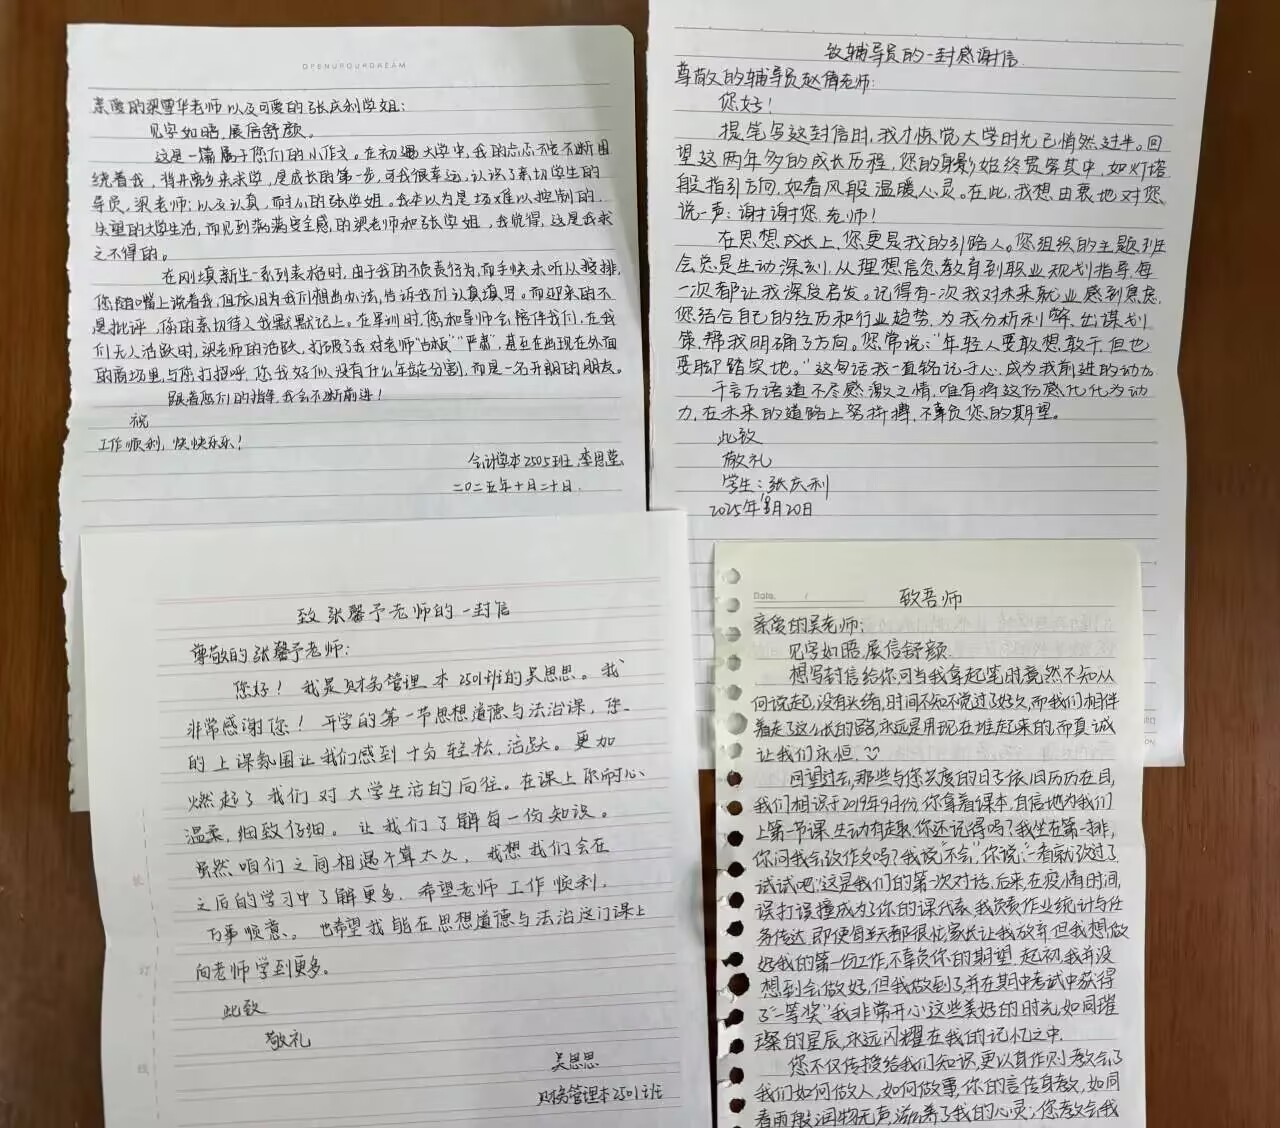 OPENUPOURDREAM
亲爱的梁雪华老师以及可爱的张庆利学姐：
见字如晤，展信舒颜。
这是一篇属于您们的小作文。在初遇大学中，我的忐忑不安不断围
绕着我，背井离乡来求学，是成长的第一步，可我很幸运，认识了亲切学生的
导员，梁老师；以及认真，耐心的张学姐。我本以为是场难以控制的，
失望的大学生活，而见到满满安全感的梁老师和张学姐，我觉得，这是我求
之不得的。
在刚填新生一系列表格时，由于我的不负责行为，而手快未听从安排，
您随嘴上说着我，但依旧为我们想出办法，告诉我们认真填写。而迎来的不
是批评，您的亲切待人我默默记上。在军训时，您和导师会陪伴我们，在我
们无人活跃时，梁老师的活跃，打破了我对老师“古板”“严肃”，甚至在出现在外面
的商场里，与您打招呼，您我好似没有什么年龄分割，而是一名开朗的朋友。
跟着您们的指挥，我会不断前进！
祝
工作顺利，快快乐乐！
会计学本2505班，李思莹
二〇二五年十月二十日
致辅导员的一封感谢信
尊敬的辅导员赵倩老师：
您好！
提笔写这封信时，我才惊觉大学时光已悄然过半。回
望这两年多的成长历程，您的身影始终贯穿其中，如灯塔
般指引方向，如春风般温暖人心灵。在此，我想由衷地对您
说一声：谢谢您，老师！
在思想成长上，您更是我的引路人。您组织的主题班
会总是生动深刻，从理想信念教育到职业规划指导，每
一次都让我深受启发。记得有一次我对未来就业感到焦虑，
您结合自己的经历和行业趋势，为我分析利弊、出谋划
策，帮我明确了方向。您常说：“年轻人要敢想敢干，但也
要脚踏实地。”这句话我一直铭记于心，成为我前进的动力。
千言万语道不尽感激之情，唯有将这份感化化为动
力，在未来的道路上努拼搏，不辜负您的期望。
此致
敬礼
学生：张庆利
2025年10月20日
致张馨予老师的一封信
尊敬的张馨予老师：
您好！我是财务管理本2501班的吴思思。我
非常感谢您！开学的第一节思想道德与法治课，您
的上课氛围让我们感到十分轻松，活跃。更加
燃起了我们对大学生活的向往。在课上你耐心、
温柔，细致仔细。让我们了解每一份知识。
虽然咱们之间相遇不算太久，我想我们会在
之后的学习中了解更多。希望老师工作顺利，
万事顺意。也希望我能在思想道德与法治这门课上
向老师学到更多。
此致
敬礼
吴思思
财务管理本2501班
装
订
线
Date. /
致吾师
亲爱的吴老师：
见字如晤，展信舒颜
想写封信给你，可当我拿起笔时竟然不知从
何说起，没有头绪，时间不知不觉过了好久，而我们相伴
着走了这么长的路，永远是用现在堆起来的，而真诚
让我们永恒。
回望过去，那些与您共度的日子依旧历历在目，
我们相识于2019年9月份，你拿着课本，自信地为我们
上第一节课，生动有趣，你还记得吗？我坐在第一排，
你问我会改作文吗？我说“不会”，你说：“看就改过了
试试吧”这是我们的第一次对话，后来，在疫情时间，
误打误撞成为了你的课代表，我负责作业统计与任
务传达，即使每天都很忙，家长让我放弃，但我想做
好我的第一份工作，不辜负你的期望，起初，我并没
想到会做好，但我做到了，并在期中考试中获得
了“一等奖”我非常开心，这些美好的时光，如同璀
璨的星辰，永远闪耀在我的记忆之中，
您不仅传授给我们知识，更以身作则，教会了
我们如何做人，如何做事，你的言传身教，如同
春雨般润物无声，滋养了我的心灵；您教会我